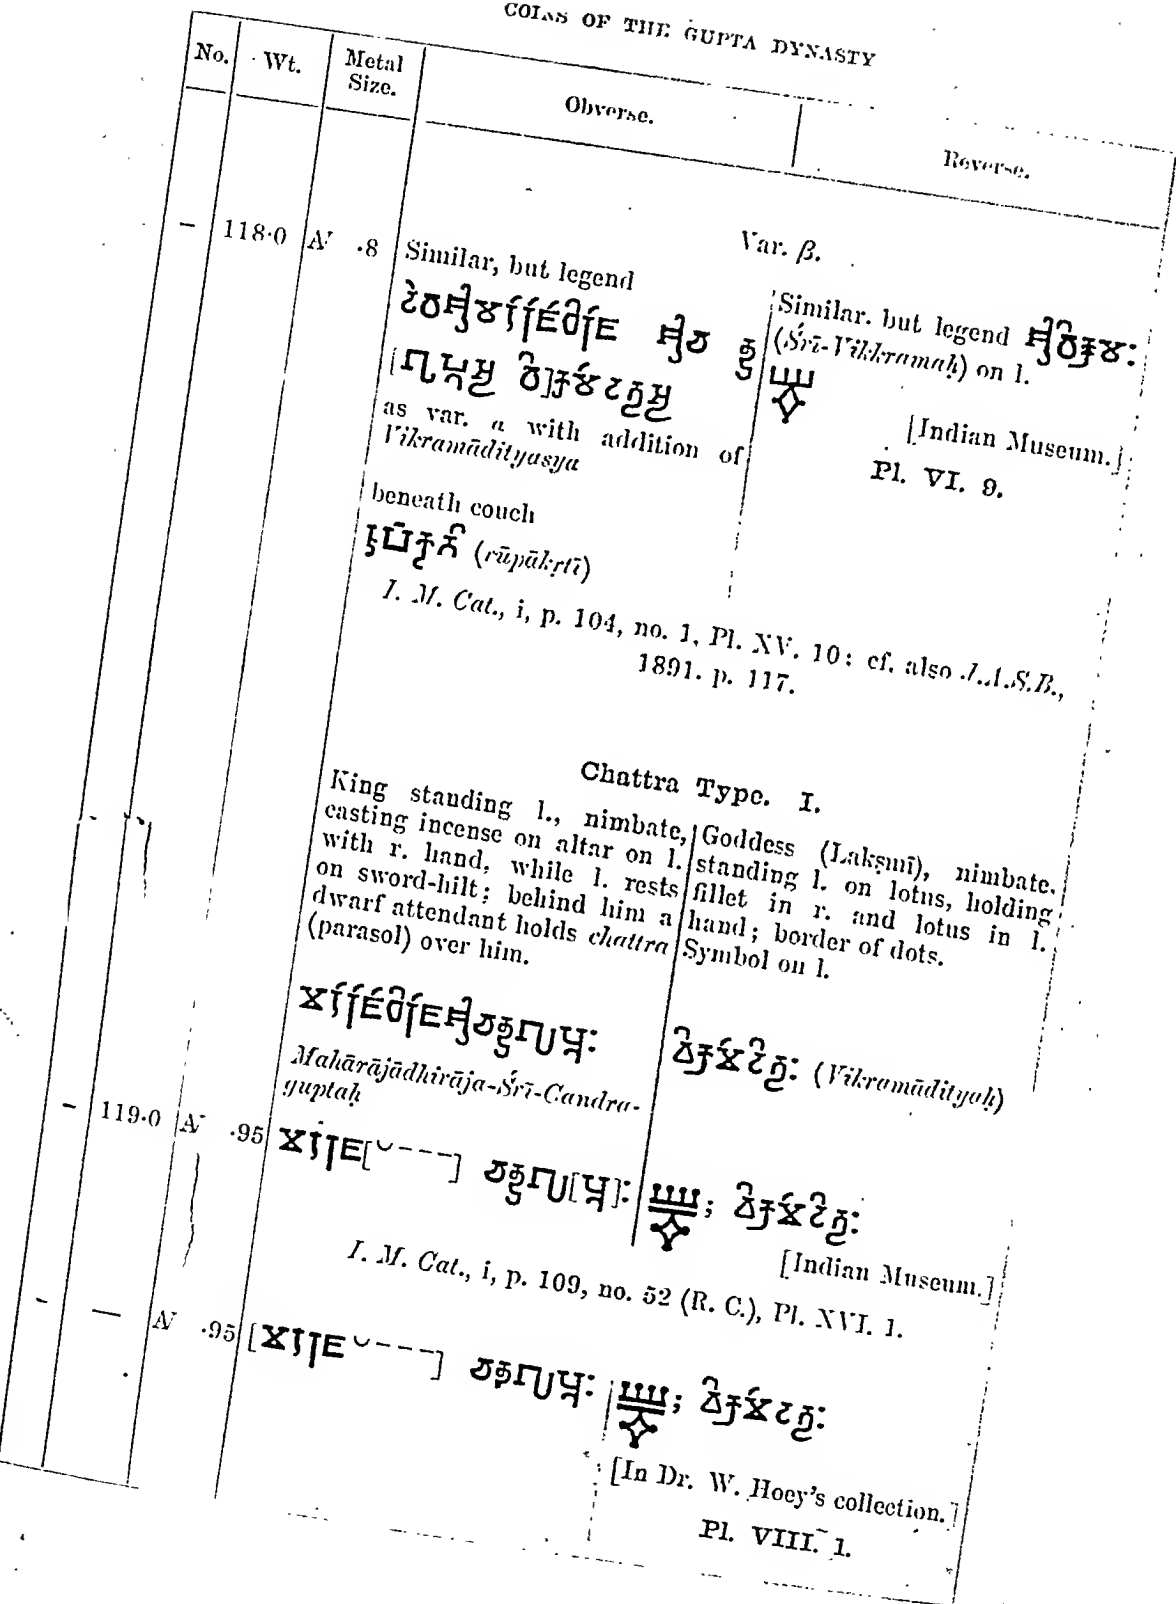 COINS OF THE GUPTA DYNASTY
No.
Wt.
Metal
Size.
Obverse.
Reverse.
Var. β.
— 118·0 N .8
Similar, but legend
as var. α with addition of
Vikramādityasya
beneath couch
(rūpākṛtī)
Similar. but legend
(Śrī-Vikkramaḥ) on l.
[Indian Museum.]
Pl. VI. 9.
I. M. Cat., i, p. 104, no. 1, Pl. XV. 10: cf. also J.A.S.B.,
1891. p. 117.
Chattra Type. I.
King standing l., nimbate,
casting incense on altar on l.
with r. hand, while l. rests
on sword-hilt; behind him a
dwarf attendant holds chattra
(parasol) over him.
Mahārājādhirāja-Śrī-Candra-
guptaḥ
Goddess (Lakṣmī), nimbate.
standing l. on lotus, holding
fillet in r. and lotus in l.
hand; border of dots.
Symbol on l.
(Vikramādityaḥ)
— 119·0 N .95
[Indian Museum.]
I. M. Cat., i, p. 109, no. 52 (R. C.), Pl. XVI. 1.
— — N .95
[In Dr. W. Hoey's collection.]
Pl. VIII. 1.